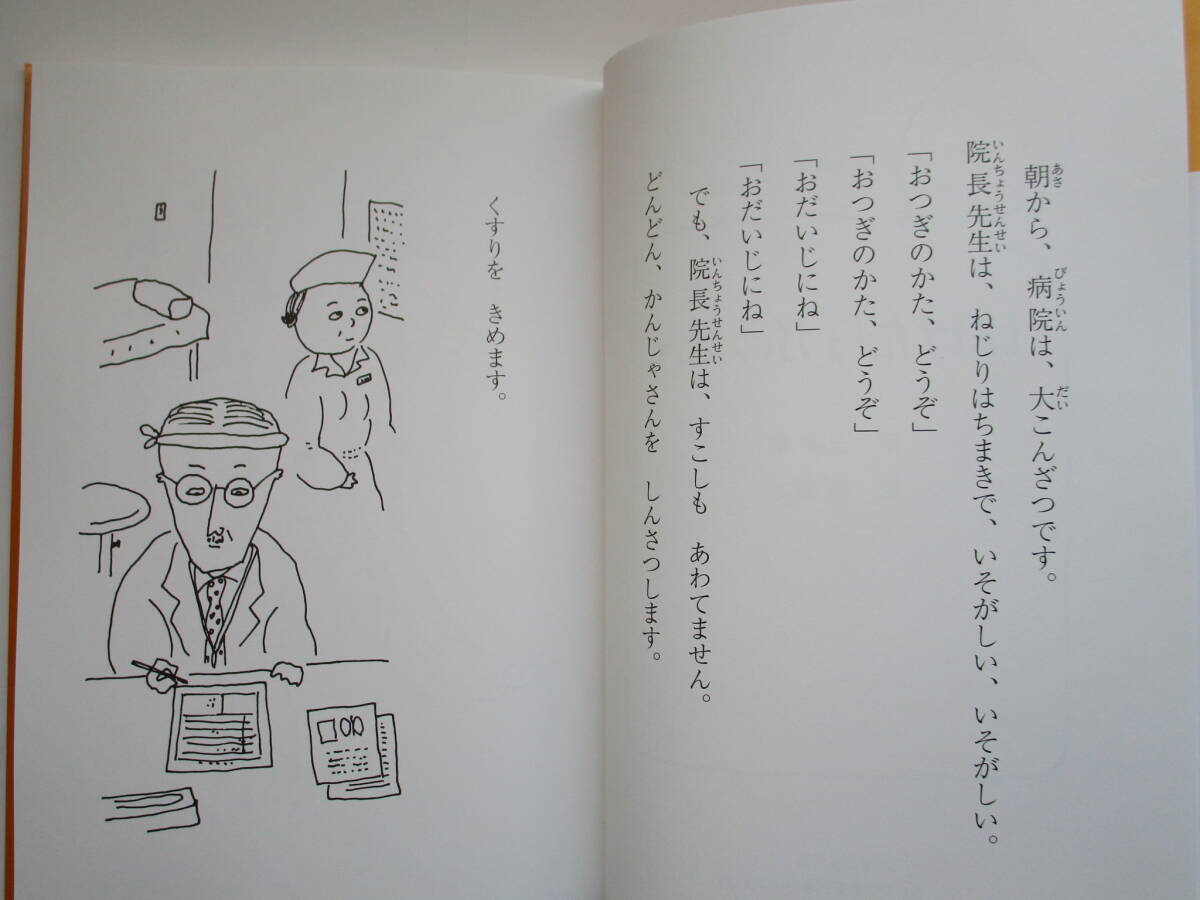 朝から、病院は、大こんざつです。
院長先生は、ねじりはちまきで、いそがしい、いそがしい。
「おつぎのかた、どうぞ」
「おつぎのかた、どうぞ」
「おだいじにね」
「おだいじにね」
でも、院長先生は、すこしも　あわてません。
どんどん、かんじゃさんを　しんさつします。
くすりを　きめます。